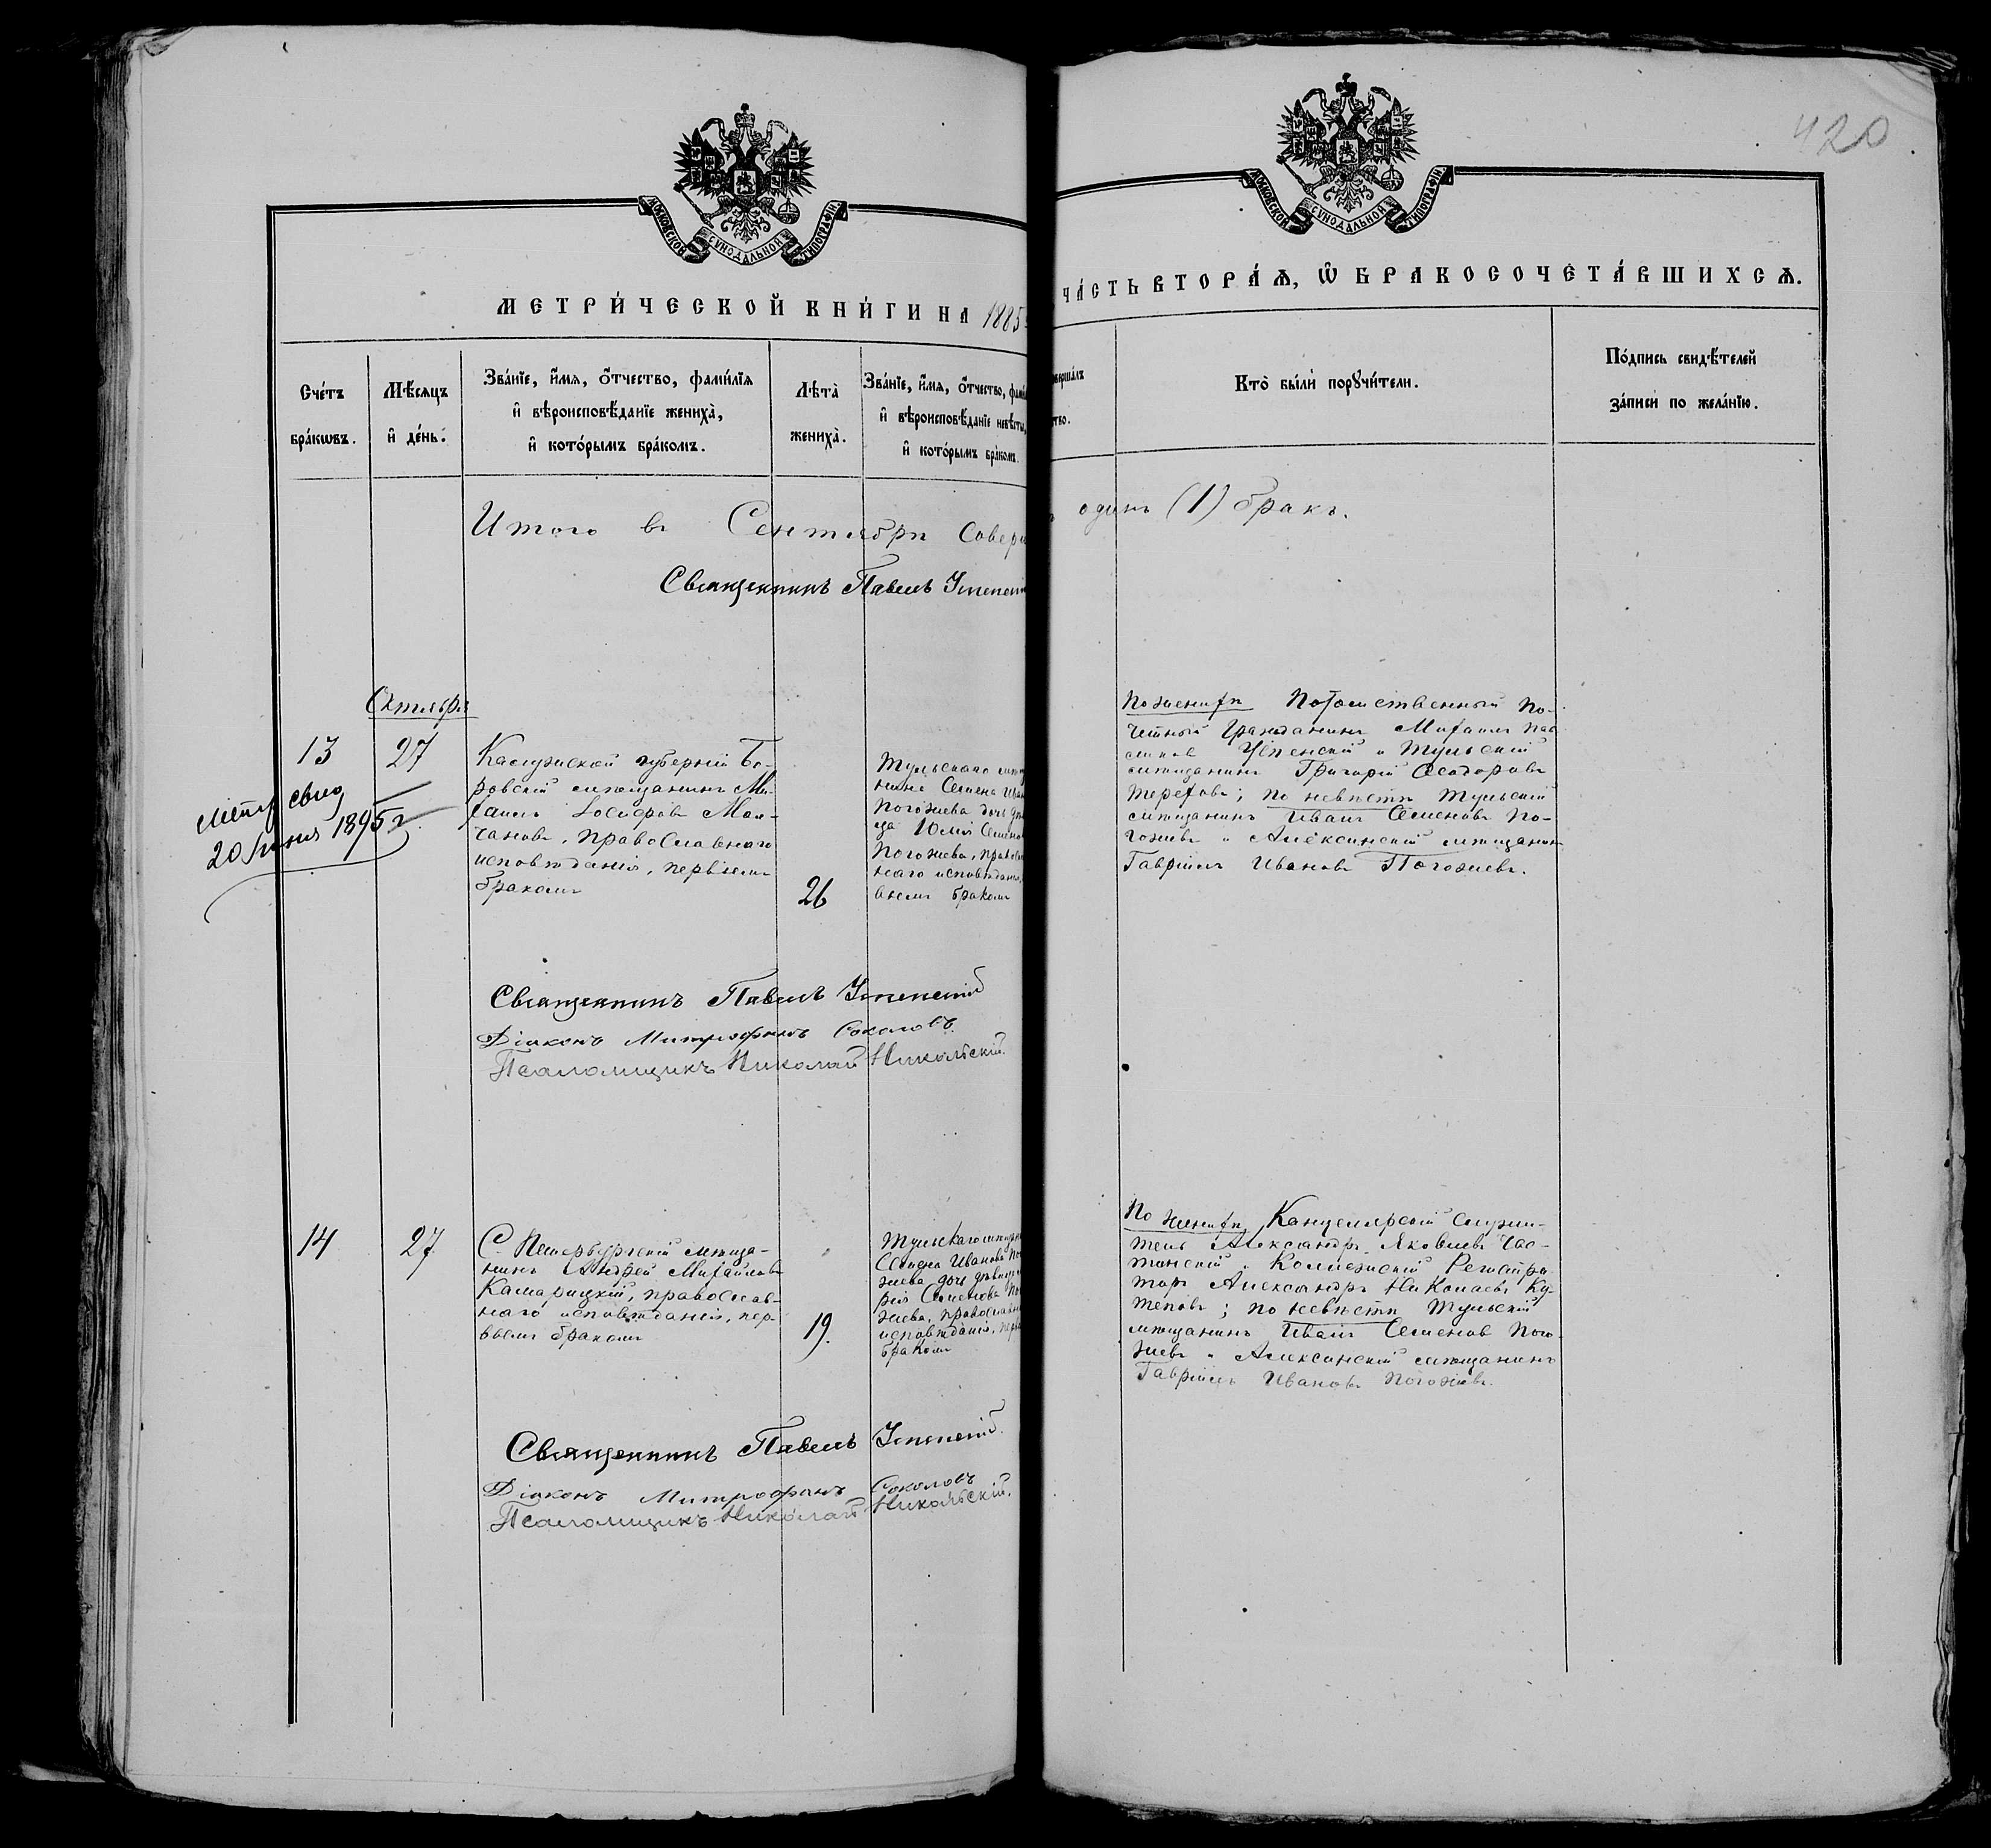 420
МОСКОВСКОЙ СѴНОДАЛЬНОЙ ТИПОГРАФІИ
МОСКОВСКОЙ СѴНОДАЛЬНОЙ ТИПОГРАФІИ
МЕТРИ́ЧЕСКОЙ КНИ́ГИ НА 1885
ЧА́СТЬ ВТОРА́Ѧ, Ѡ БРАКОСОЧЕТА́ВШИХСѦ.
Сче́тъ бра́кѡвъ.
Мѣ́сяцъ и҆ де́нь.
Зва́нїе, и҆́мя, ѻ҆́тчество, фами́лїя
и҆ вѣроисповѣ́данїе жениха̀,
и҆ кото́рымъ бра́комъ.
Лѣта̀ жениха̀.
Зва́нїе, и҆́мя, ѻ҆́тчество,
и҆ вѣроисповѣ́данїе невѣсты,
и҆ кото́рымъ бра́комъ.
Кто̀ бы́ли порꙋчи́тели.
По́дпись свидѣ́телей
за́писи по жела́нїю.
Итого въ Сентябрѣ Совер
одинъ (1) бракъ.
Священникъ Павелъ Успенскій
Октябрь
13
27
Метр свид
20 Іюня 1895 г.
Калужской губерніи Бо-
ровскій мѣщанинъ Ми-
хаилъ Іосифовъ Мол-
чановъ, православнаго
исповѣданія, первымъ
бракомъ
26
Тульскаго
Семена
Погожева дочь
ца Юлія Семено
Погожева, правосла
наго исповѣданія,
вымъ бракомъ
По женихѣ Потомственный По-
четный Гражданинъ Михаилъ Пав
Успенскій и Тульскій
мѣщанинъ Григорій Ѳеодоровъ
Тереховъ; по невѣстѣ Тульскій
мѣщанинъ Иванъ Семеновъ По-
гожевъ и Алексинскій мѣщанинъ
Гавріилъ Ивановъ Погожевъ.
Священникъ Павелъ Успенскій
Діаконъ Митрофанъ Соколовъ.
Псаломщикъ Николай Никольскій.
14
27
С. Петербургскій мѣща-
нинъ Андрей Михайловъ
Камарицкій, православ-
наго исповѣданія, пер-
вымъ бракомъ
19.
Тульскаго
Семена Иванова По
жева дочь дѣвица
рія Семенова По
жева, православн
исповѣданія, перв
бракомъ
По женихѣ Канцелярскій служи-
тель Александръ Яковлевъ
и Коллежскій Регистра
торъ Александръ Николаевъ Ку-
теповъ; по невѣстѣ Тульскій
мѣщанинъ Иванъ Семеновъ Пого-
жевъ и Алексинскій мѣщанинъ
Гавріилъ Ивановъ Погожевъ.
Священникъ Павелъ Успенскій.
Діаконъ Митрофанъ Соколовъ
Псаломщикъ Николай Никольскій.